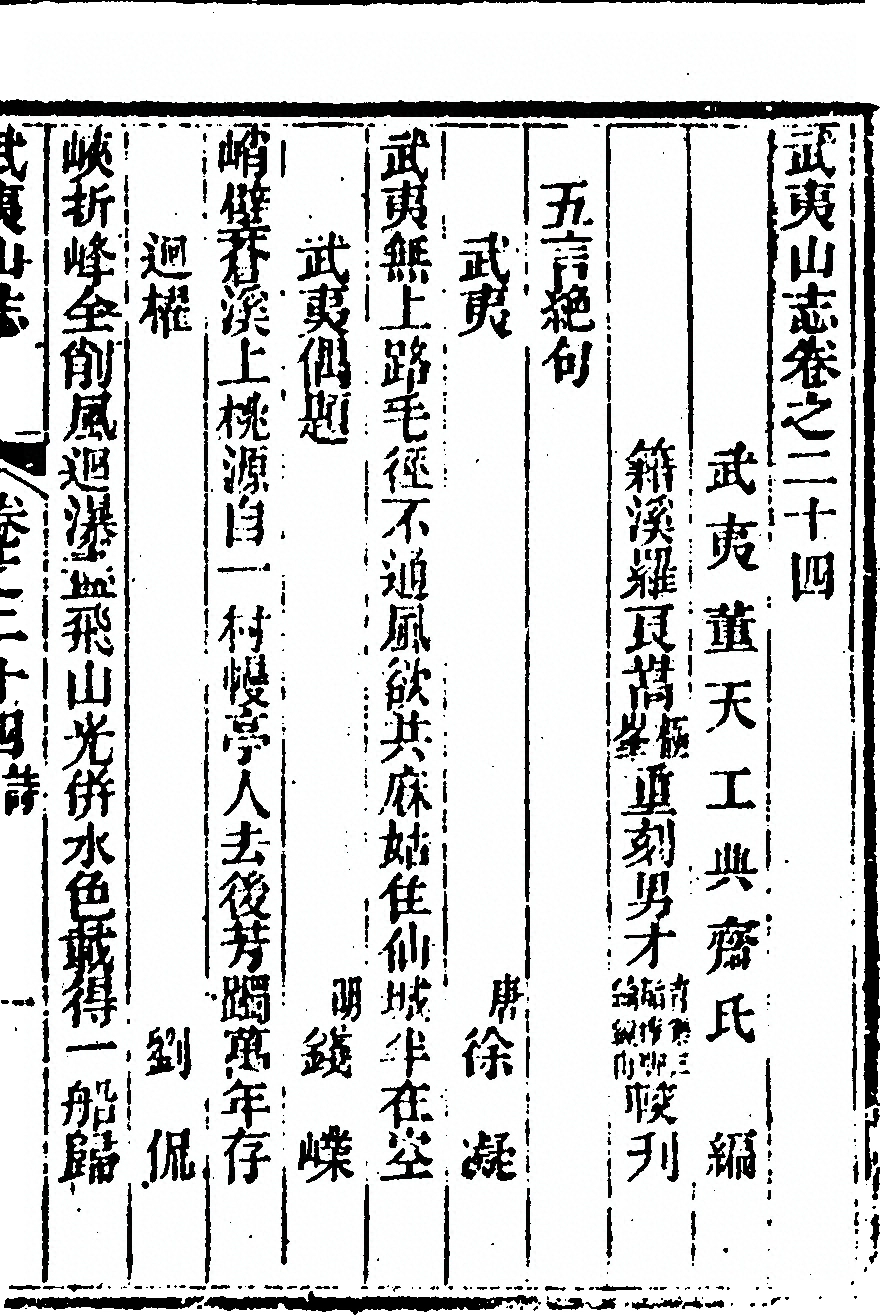 武夷山志卷之二十四
武夷董天工典齋氏 編
籍溪羅良嵩 重刻男才 校刋
五言絶句
武夷 唐 徐 凝
武夷無上路毛徑不通風欲共麻姑住仙城半在空
武夷偶題 明 錢 嶫
峭壁蒼溪上桃源自一村幔亭人去後芳躅萬年存
迴櫂 劉 侃
峽折峰全削風迴瀑亂飛山光併水色載得一船歸
武夷山志 卷之二十四 詩 一